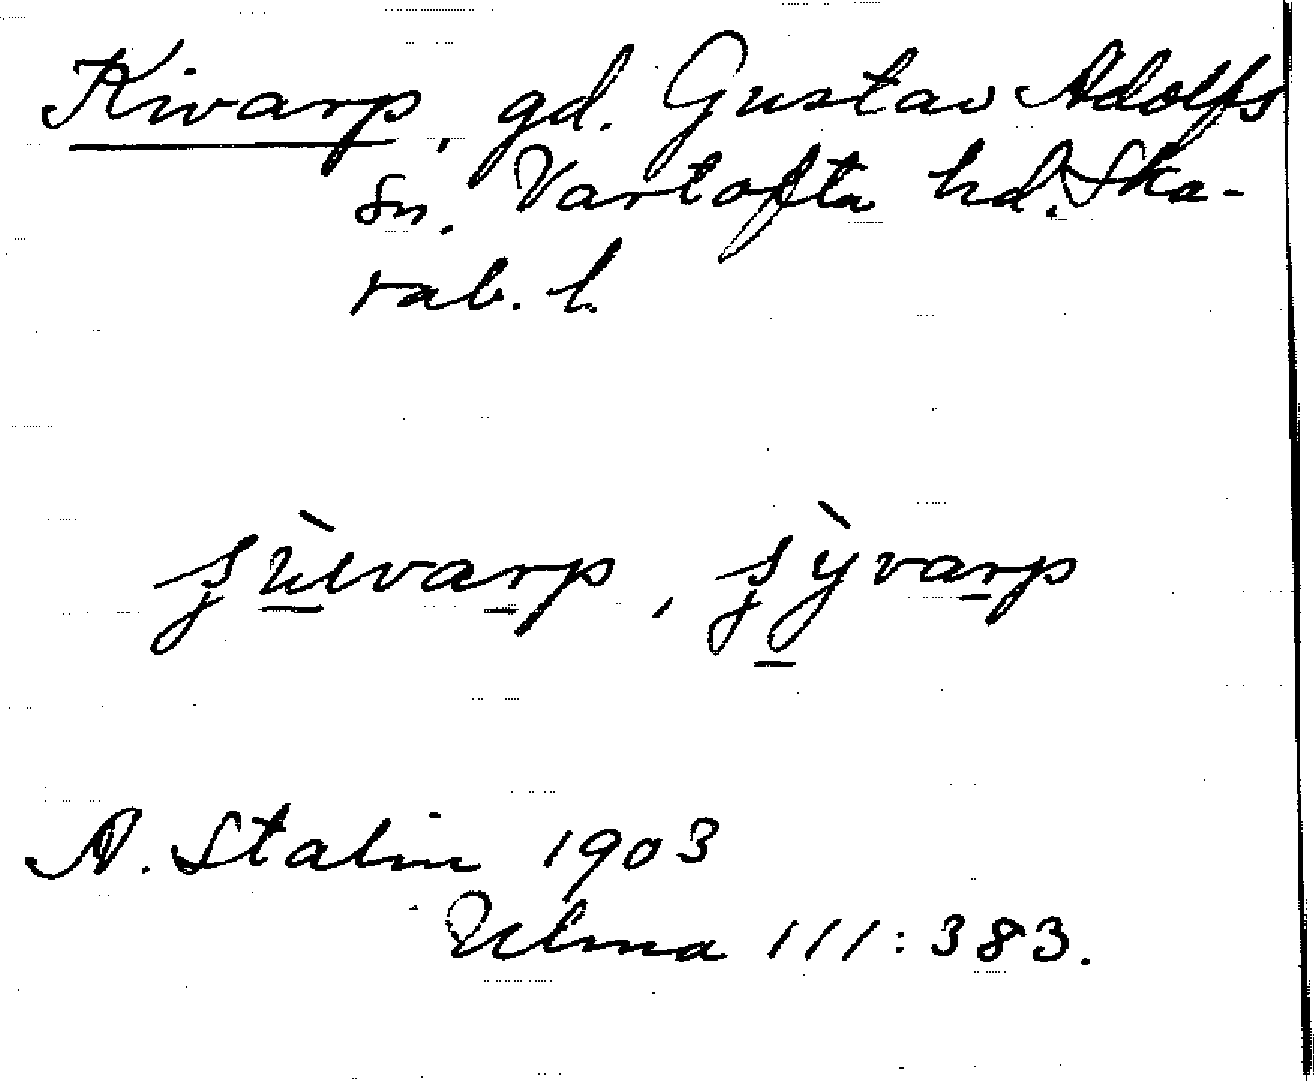 Kivarp, gd. Gustav Adolfs
sn. Vartofta hd. Ska-
rab. l.
A. Stalin 1903
Ulma 111:383.